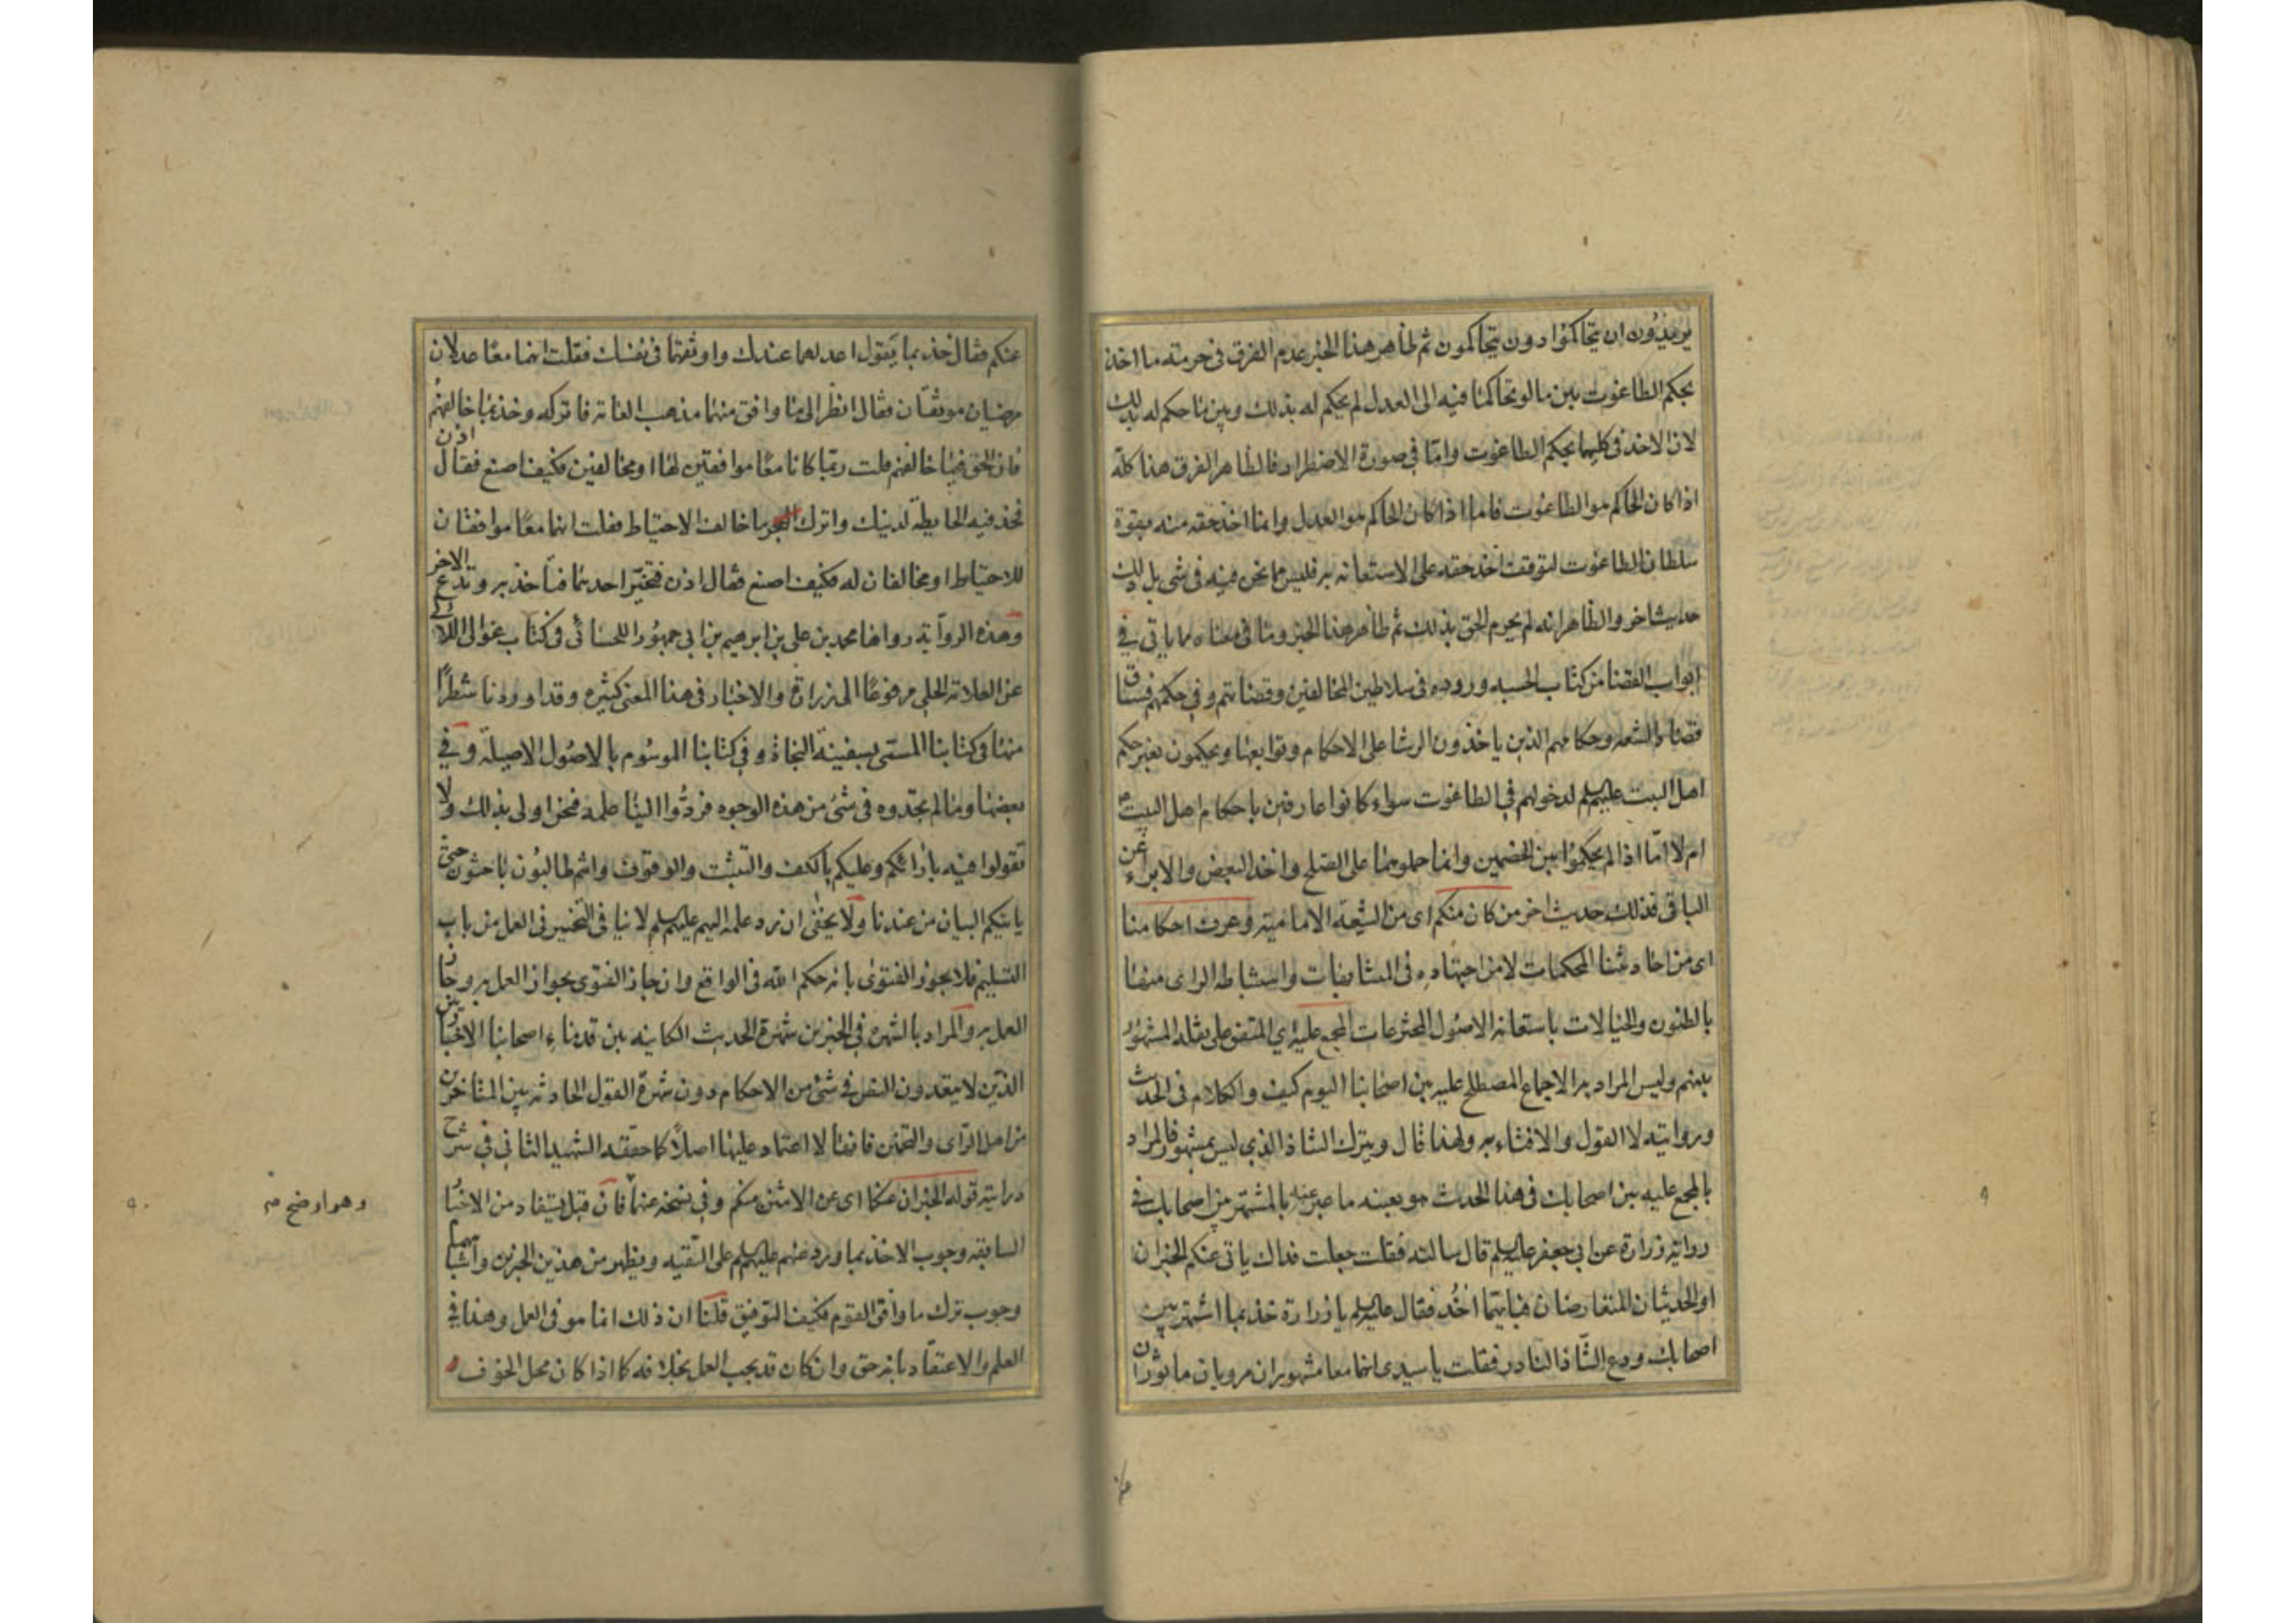 يريدون ان يتحاكموا دون يتحاكمون ثم ظاهر هذا الخبر عدم الفرق في حرمته ما اخذ
بحكم الطاغوت بين ما لو تحاكما فيه الى العدل لم يحكم له بذلك وبين ما حكم له بذلك
لان الاخذ في كليهما بحكم الطاغوت واما في صورة الاضطرار فالظاهر الفرق هذا كله
اذا كان الحاكم هو الطاغوت فاما اذا كان الحاكم هو العدل وانما اخذ حقه منه بقوة
سلطان الطاغوت لتوقف اخذ حقه على الاستعانه به فليس مما نحن فيه في شئ بل ذلك
حديث اخر والظاهر انه لم يحرم الحق بذلك ثم ظاهر هذا الخبر وما في معناه مما ياتي في
ابواب القضا من كتاب الحسبه وروده في سلاطين المخالفين وقضاتهم وفي حكمهم فساق
قضاة الشيعه وحكامهم الذين ياخذون الرشا على الاحكام وتوابعها ويحكمون بغير حكم
اهل البيت عليهم السلم لدخولهم في الطاغوت سواء كانوا عارفين باحكام اهل البيت
ام لا اما اذا لم يحكموا بين الخصمين وانما حملوهما على الصلح واخذ البعض والابراء عن
الباقي فذلك حديث اخر من كان منكم اى من الشيعة الامامية وعرف احكامنا
اى من احاديثنا المحكمات لا من اجتهاده في المتشابهات واستنباطه الراى منها
بالظنون والخيالات باستعانه الاصول المخترعات المجمع عليه اي المتفق على نقله المشهور
بينهم وليس المراد به الاجماع المصطلح عليه بين اصحابنا اليوم كيف والكلام في الحديث
وروايته لا القول والافتاء به ولهذا قال ويترك الشاذ الذي ليس بمشهور فالمراد
بالمجمع عليه بين اصحابك في هذا الحديث هو بعينه ما عبر عنه بالمشتهر بين اصحابك في
رواية زرارة عن ابي جعفر عليه السلم قال سالته فقلت جعلت فداك ياتي عنكم الخبران
او الحديثان المتعارضان فبايهما آخُذ فقال عليه السلم يا زرارة خذ بما اشتهر بين
اصحابك ودع الشاذ النادر فقلت يا سيدى انهما معا مشهوران مرويان ماثوران
عنكم فقال خذ بما يقول اعدلهما عندك واوثقهما في نفسك فقلت انهما معًا عدلان
مرضيان موثقان فقال انظر الى ما وافق منهما مذهب العامة فاتركه وخذ بما خالفهم
فان الحق فيما خالفهم قلت ربما كانا معًا موافقين لهما او مخالفين فكيف اصنع فقال اذن
فخذ فيه الحايطة لدينك واترك ما خالف الاحتياط فقلت انهما معًا موافقان
للاحتياط او مخالفان له فكيف اصنع فقال اذن فتخير احديهما فتاخذ به وتدع الاخر
وهذه الرواية رواها محمد بن علي بن ابرهيم بن ابي جمهور اللحسائي في كتاب غوالى اللآلى
عن العلامة الحلي مرفوعًا الى زرارة والاخبار في هذا المعنى كثيره وقد اوردنا شطرًا
منها في كتابنا المسمى بسفينة النجاة وفي كتابنا الموسوم بالاصول الاصيلة وفي
بعضها وما لم تجدوه في شئ من هذه الوجوه فردّوا الينا علمه فنحن اولى بذلك ولا
تقولوا فيه بارائكم وعليكم بالكف والتثبت والوقوف وانتم طالبون باحثون حتى
ياتيكم البيان من عندنا ولا يخفى ان رد علمه اليهم عليهم السلم لا ينافي التخيير في العمل من باب
التسليم فلا يجوز الفتوى بانه حكم الله في الواقع وان جاز الفتوى بجواز العمل به وجاز
العمل به والمراد بالشهرة في الخبرين شهرة الحديث الكاينه بين قدماء اصحابنا الاخباريين
الذين لا يتعدون النص في شئ من الاحكام دون شهرة القول الحادثه بين المتاخرين
من اهل الراى والتخمين فانها لا اعتماد عليها اصلًا كما حققه الشهيد الثاني في شرح
درايته قوله الخبران عنكما اى عن الاثنين منكم وفي نسخة عنهما فان قيل يستفاد من الاخبار
وهو اوضح منه
السابقه وجوب الاخذ بما ورد عنهم عليهم السلم على التقيه ويظهر من هذين الخبرين واشباههما
وجوب ترك ما وافق القوم فكيف التوفيق قلنا ان ذلك انما هو في العمل وهذا في
العلم والاعتقاد بانه حق وان كان قد يجب العمل بخلافه كما اذا كان محل الخوف